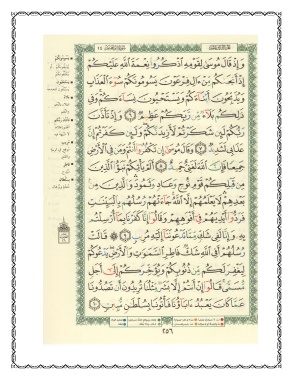 وَإِذْ قَالَ مُوسَىٰ لِقَوْمِهِ ٱذْكُرُوا۟ نِعْمَةَ ٱللَّهِ عَلَيْكُمْ
إِذْ أَنجَىٰكُم مِّنْ ءَالِ فِرْعَوْنَ يَسُومُونَكُمْ سُوٓءَ ٱلْعَذَابِ
وَيُذَبِّحُونَ أَبْنَآءَكُمْ وَيَسْتَحْيُونَ نِسَآءَكُمْ وَفِى
ذَٰلِكُم بَلَآءٌ مِّن رَّبِّكُمْ عَظِيمٌ ٦ وَإِذْ تَأَذَّنَ
رَبُّكُمْ لَئِن شَكَرْتُمْ لَأَزِيدَنَّكُمْ وَلَئِن كَفَرْتُمْ إِنَّ
عَذَابِى لَشَدِيدٌ ٧ وَقَالَ مُوسَىٰٓ إِن تَكْفُرُوٓا۟ أَنتُمْ وَمَن فِى ٱلْأَرْضِ
جَمِيعًا فَإِنَّ ٱللَّهَ لَغَنِىٌّ حَمِيدٌ ٨ أَلَمْ يَأْتِكُمْ نَبَؤُا۟ ٱلَّذِينَ
مِن قَبْلِكُمْ قَوْمِ نُوحٍ وَعَادٍ وَثَمُودَ وَٱلَّذِينَ مِنۢ
بَعْدِهِمْ لَا يَعْلَمُهُمْ إِلَّا ٱللَّهُ جَآءَتْهُمْ رُسُلُهُم بِٱلْبَيِّنَٰتِ
فَرَدُّوٓا۟ أَيْدِيَهُمْ فِىٓ أَفْوَٰهِهِمْ وَقَالُوٓا۟ إِنَّا كَفَرْنَا بِمَآ أُرْسِلْتُم
بِهِۦ وَإِنَّا لَفِى شَكٍّ مِّمَّا تَدْعُونَنَآ إِلَيْهِ مُرِيبٍ ٩ قَالَتْ
رُسُلُهُمْ أَفِى ٱللَّهِ شَكٌّ فَاطِرِ ٱلسَّمَٰوَٰتِ وَٱلْأَرْضِ يَدْعُوكُمْ
لِيَغْفِرَ لَكُم مِّن ذُنُوبِكُمْ وَيُؤَخِّرَكُمْ إِلَىٰٓ أَجَلٍ
مُّسَمًّى قَالُوٓا۟ إِنْ أَنتُمْ إِلَّا بَشَرٌ مِّثْلُنَا تُرِيدُونَ أَن تَصُدُّونَا
عَمَّا كَانَ يَعْبُدُ ءَابَآؤُنَا فَأْتُونَا بِسُلْطَٰنٍ مُّبِينٍ ١٠
٢٥٦